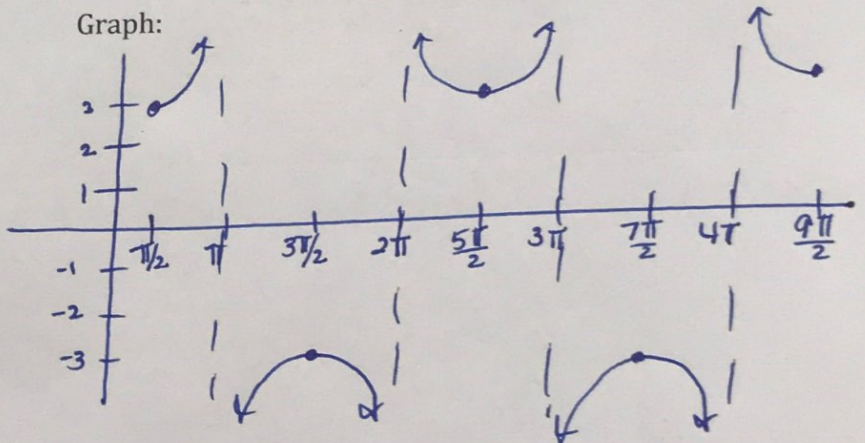 Graph:
3
2
1
π/2 π 3π/2 2π 5π/2 3π 7π/2 4π 9π/2
-1
-2
-3